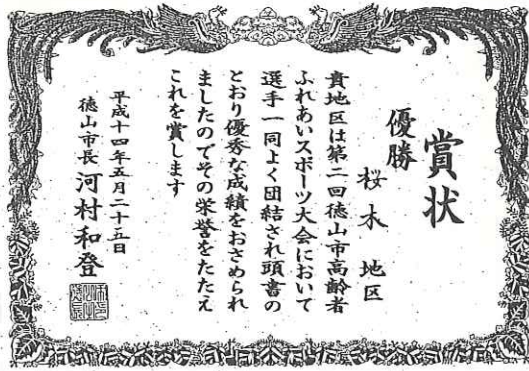 賞状
優勝
桜木 地区
貴地区は第二回徳山市高齢者
ふれあいスポーツ大会において
選手一同よく団結され頭書の
とおり優秀な成績をおさめられ
ましたのでその栄誉をたたえ
これを賞します
平成十四年五月二十五日
徳山市長 河村和登